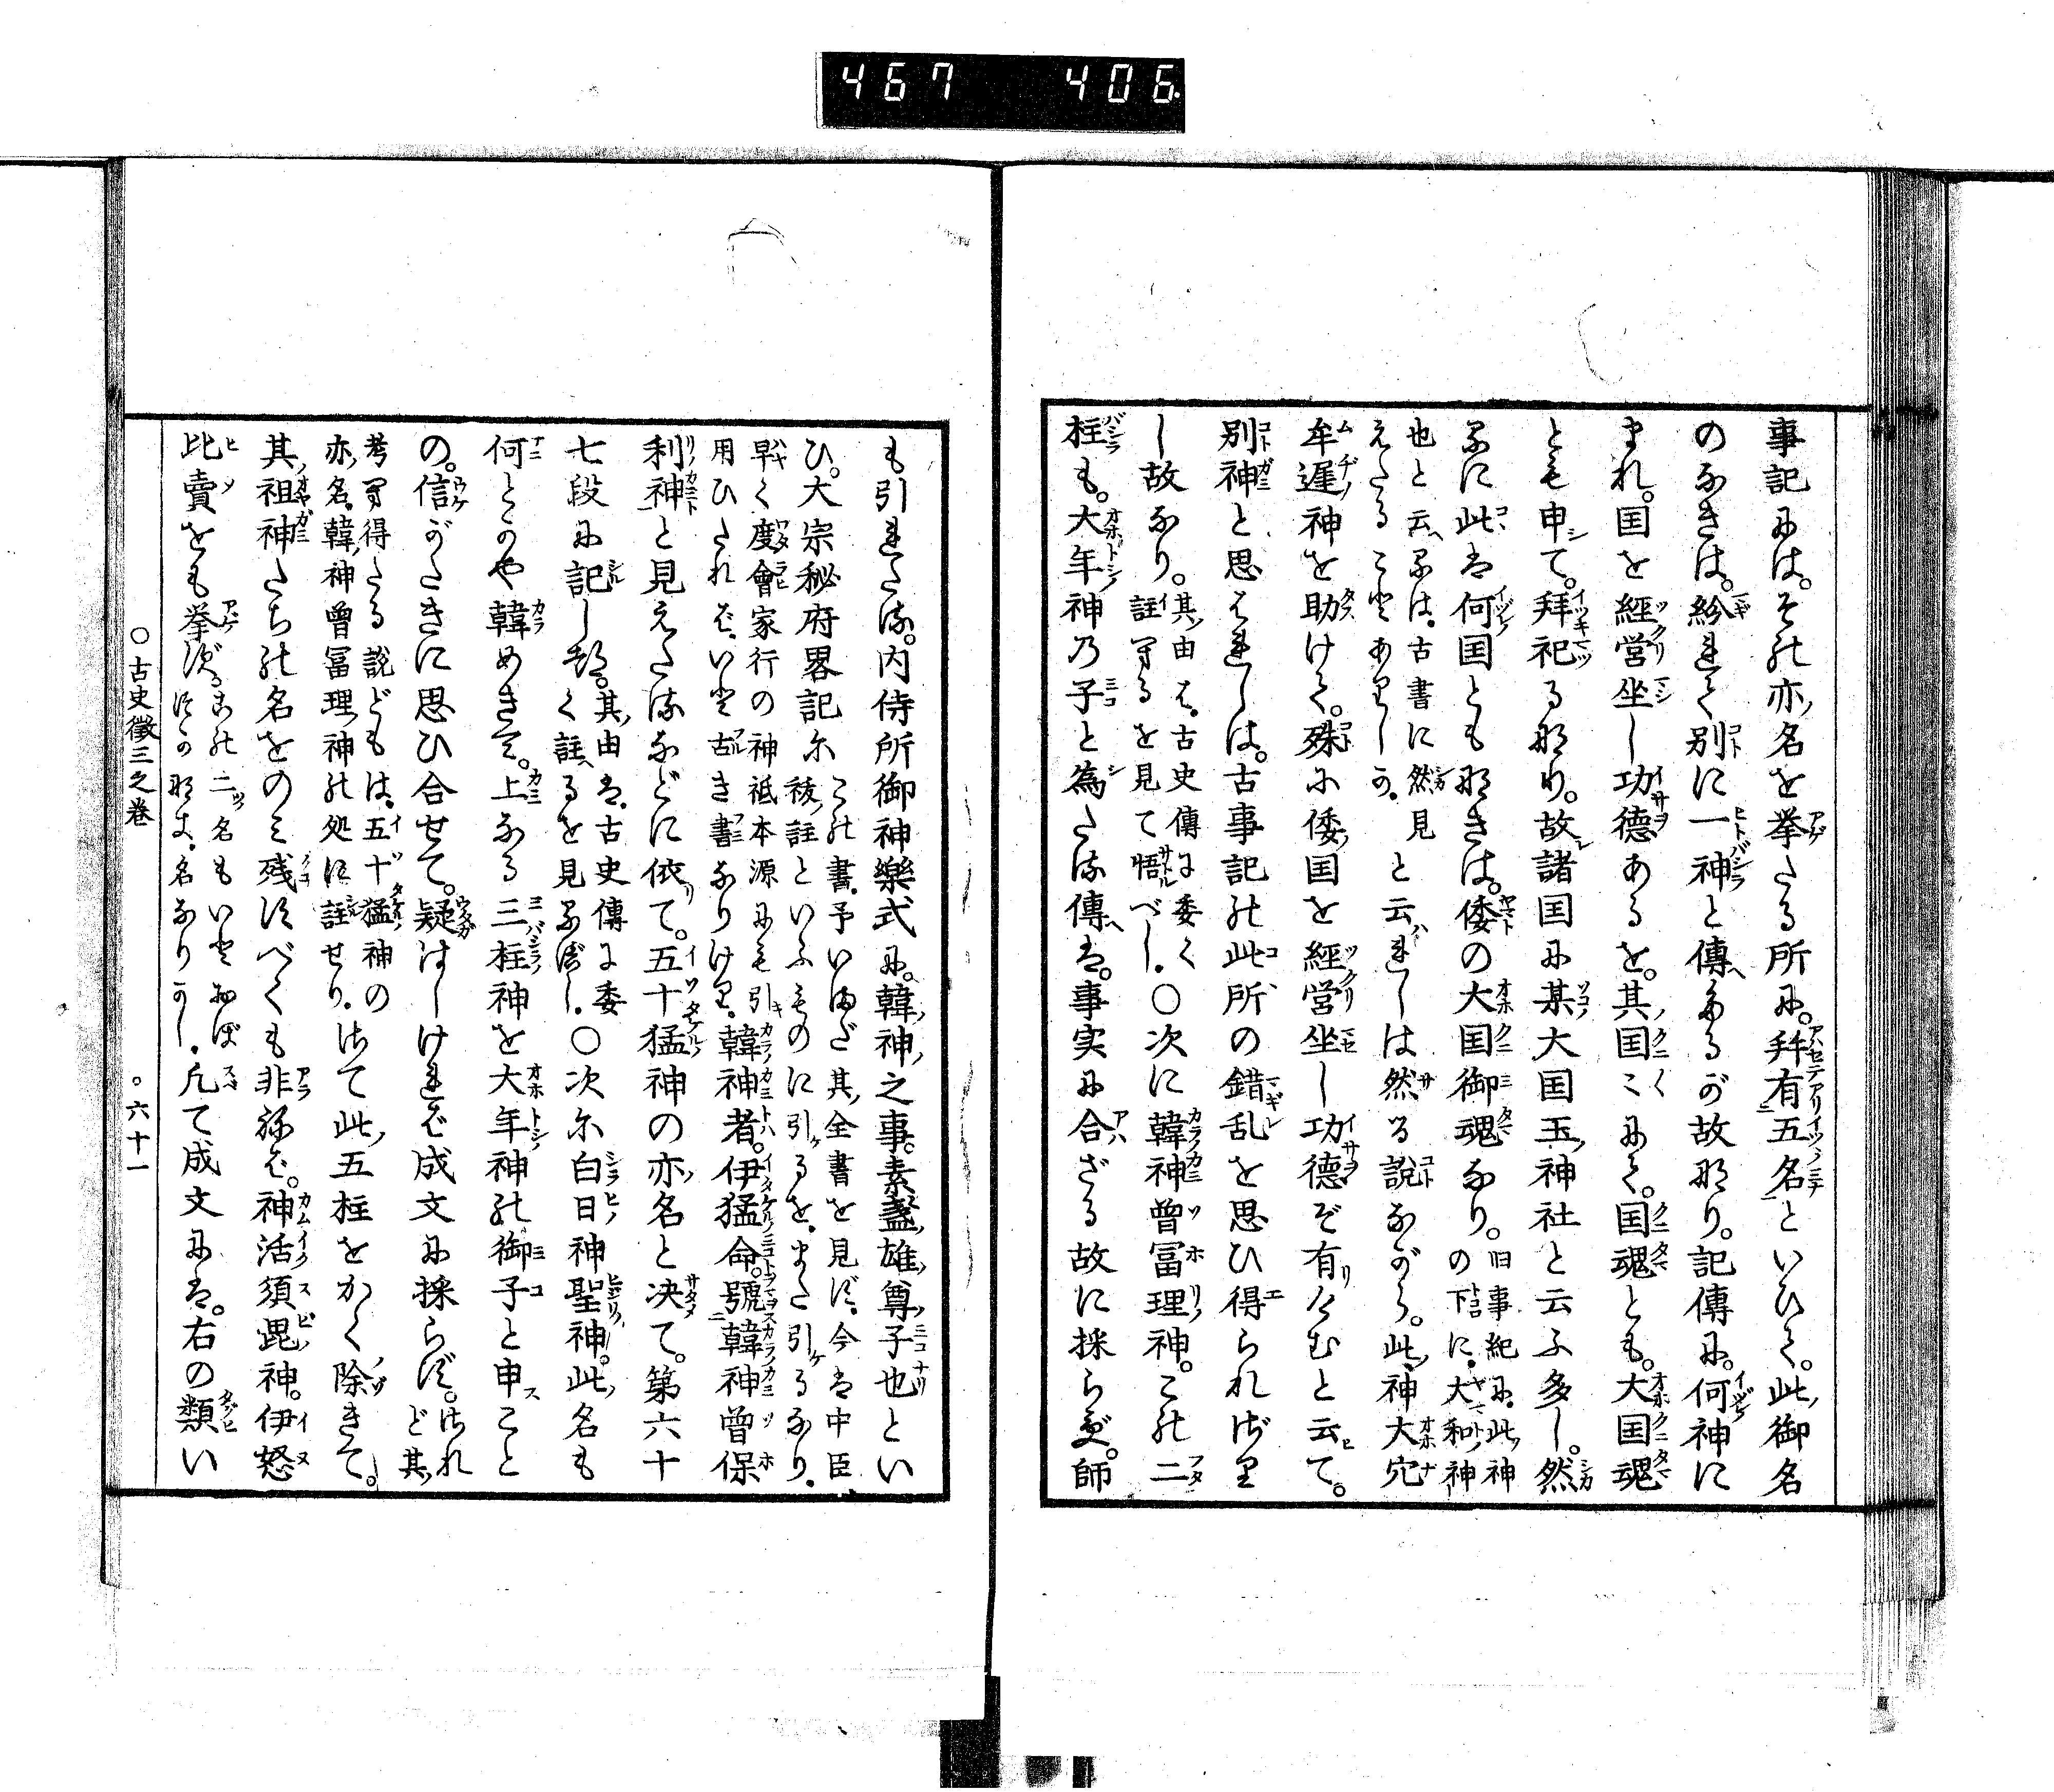 467 406.
事記には。その亦名を挙たる所に。幷有五名といひて。此御名
のなきは。紛れて別に一神と傳たるが故なり。記傳に。何神に
まれ。国を經営坐し功徳あるを。其国〻にて。国魂とも。大国魂
とも申て。拜祀る也り。故諸国に某大国玉神社と云ふ多し。然
るに此は何国とも無きは。倭の大国御魂なり。旧事紀に。此神
の下に。大和神
也と云るは。古書に然見
えたることありしか。と云れしは然る説ながら。此神大穴
牟遅神を助けて。殊に倭国を經営坐し功徳ぞ有けむと云て。
別神と思はれしは。古事記の此所の錯乱を思ひ得られざり
し故なり。其由は。古史傳に委く
註するを見て悟べし。〇次に韓神曾富理神。この二
柱も。大年神乃子と為たる傳は。事実に合ざる故に採らず。師
も引れたる。内侍所御神樂式に。韓神之事。素盞雄尊子也とい
ひ。大宗秘府畧記尓この書。予いまだ其全書を見ず。今は中臣
祓註といふものに引るを。また引るなり。
早く度會家行の神祇本源にも引
用ひたれば。いと古き書なりけり。韓神者。伊猛命。號韓神曾保
利神と見えたるなどに依て。五十猛神の亦名と决て。第六十
七段に記し都。其由は。古史傳に委
く註るを見るべし。〇次尓白日神聖神。此名も
何とかや韓めきて。上なる三柱神を大年神の御子と申こと
の。信がたきに思ひ合せて。疑はしければ成文に採らず。されど其
考得たる説どもは。五十猛神の
亦名。韓神曾富理神の処に註せり。さて此五柱をかく除きて。
其祖神たちの名をのみ残すべくも非ねば。神活須毘神。伊怒
比賣をも挙ず。この二名もいとおぼ
つかなき名なりかし。凡て成文には。右の類い
〇古史徴三之巻 。六十一